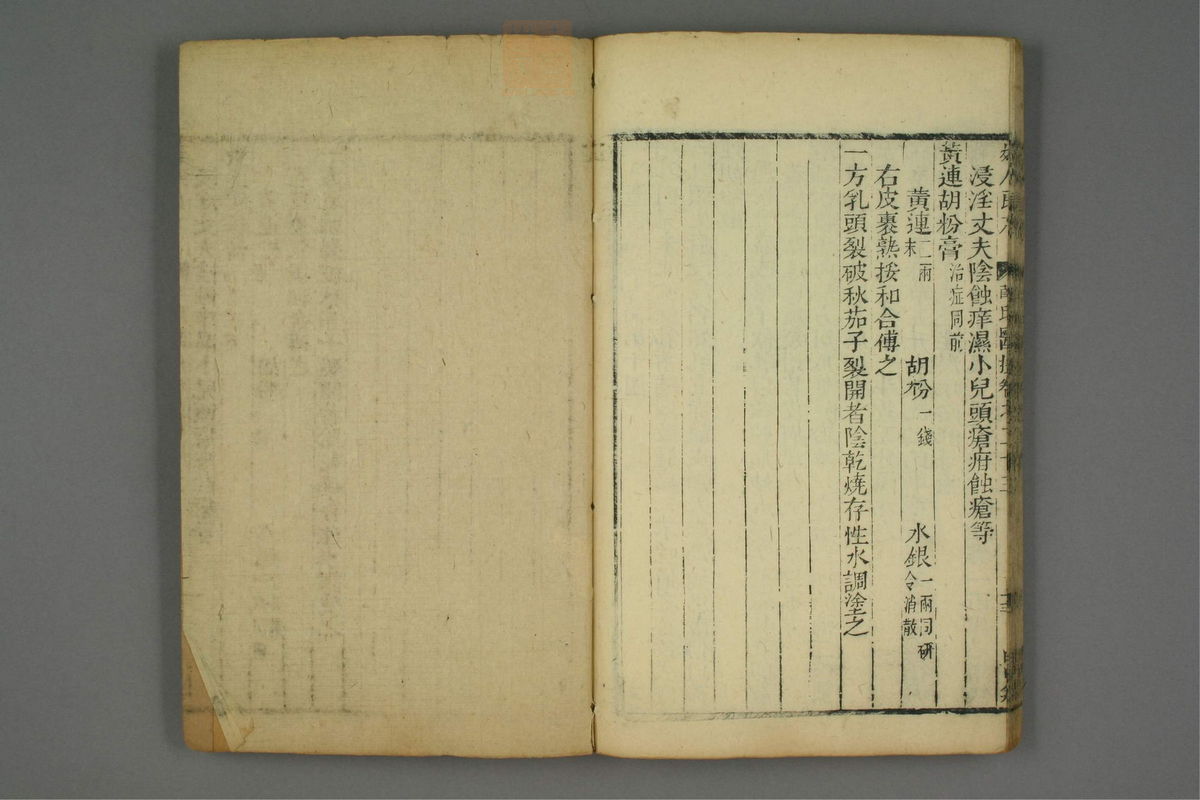 浸淫丈夫陰蝕痒濕小兒頭瘡疳蝕瘡等
黃連胡粉膏 治症同前
黃連 二兩末 胡粉 一錢 水銀 一兩同研令消散
右皮裹熟挼和合傅之
一方乳頭裂破秋茄子裂開者陰乾燒存性水調塗之